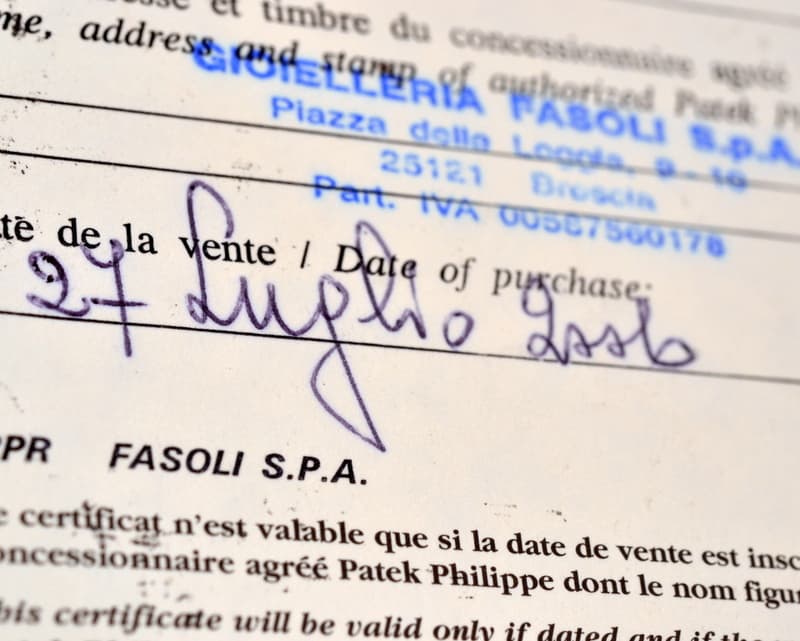 sse et timbre du concessionnaire agréé
me, address and stamp of authorized Patek Ph
GIOIELLERIA FASOLI S.p.A.
Piazza della Loggia, 9 - 10
25121 Brescia
Part. IVA 00587560178
te de la vente / Date of purchase:
27 Luglio 2006
PR FASOLI S.P.A.
e certificat n'est valable que si la date de vente est insc
oncessionnaire agréé Patek Philippe dont le nom figu
his certificate will be valid only if dated and if the